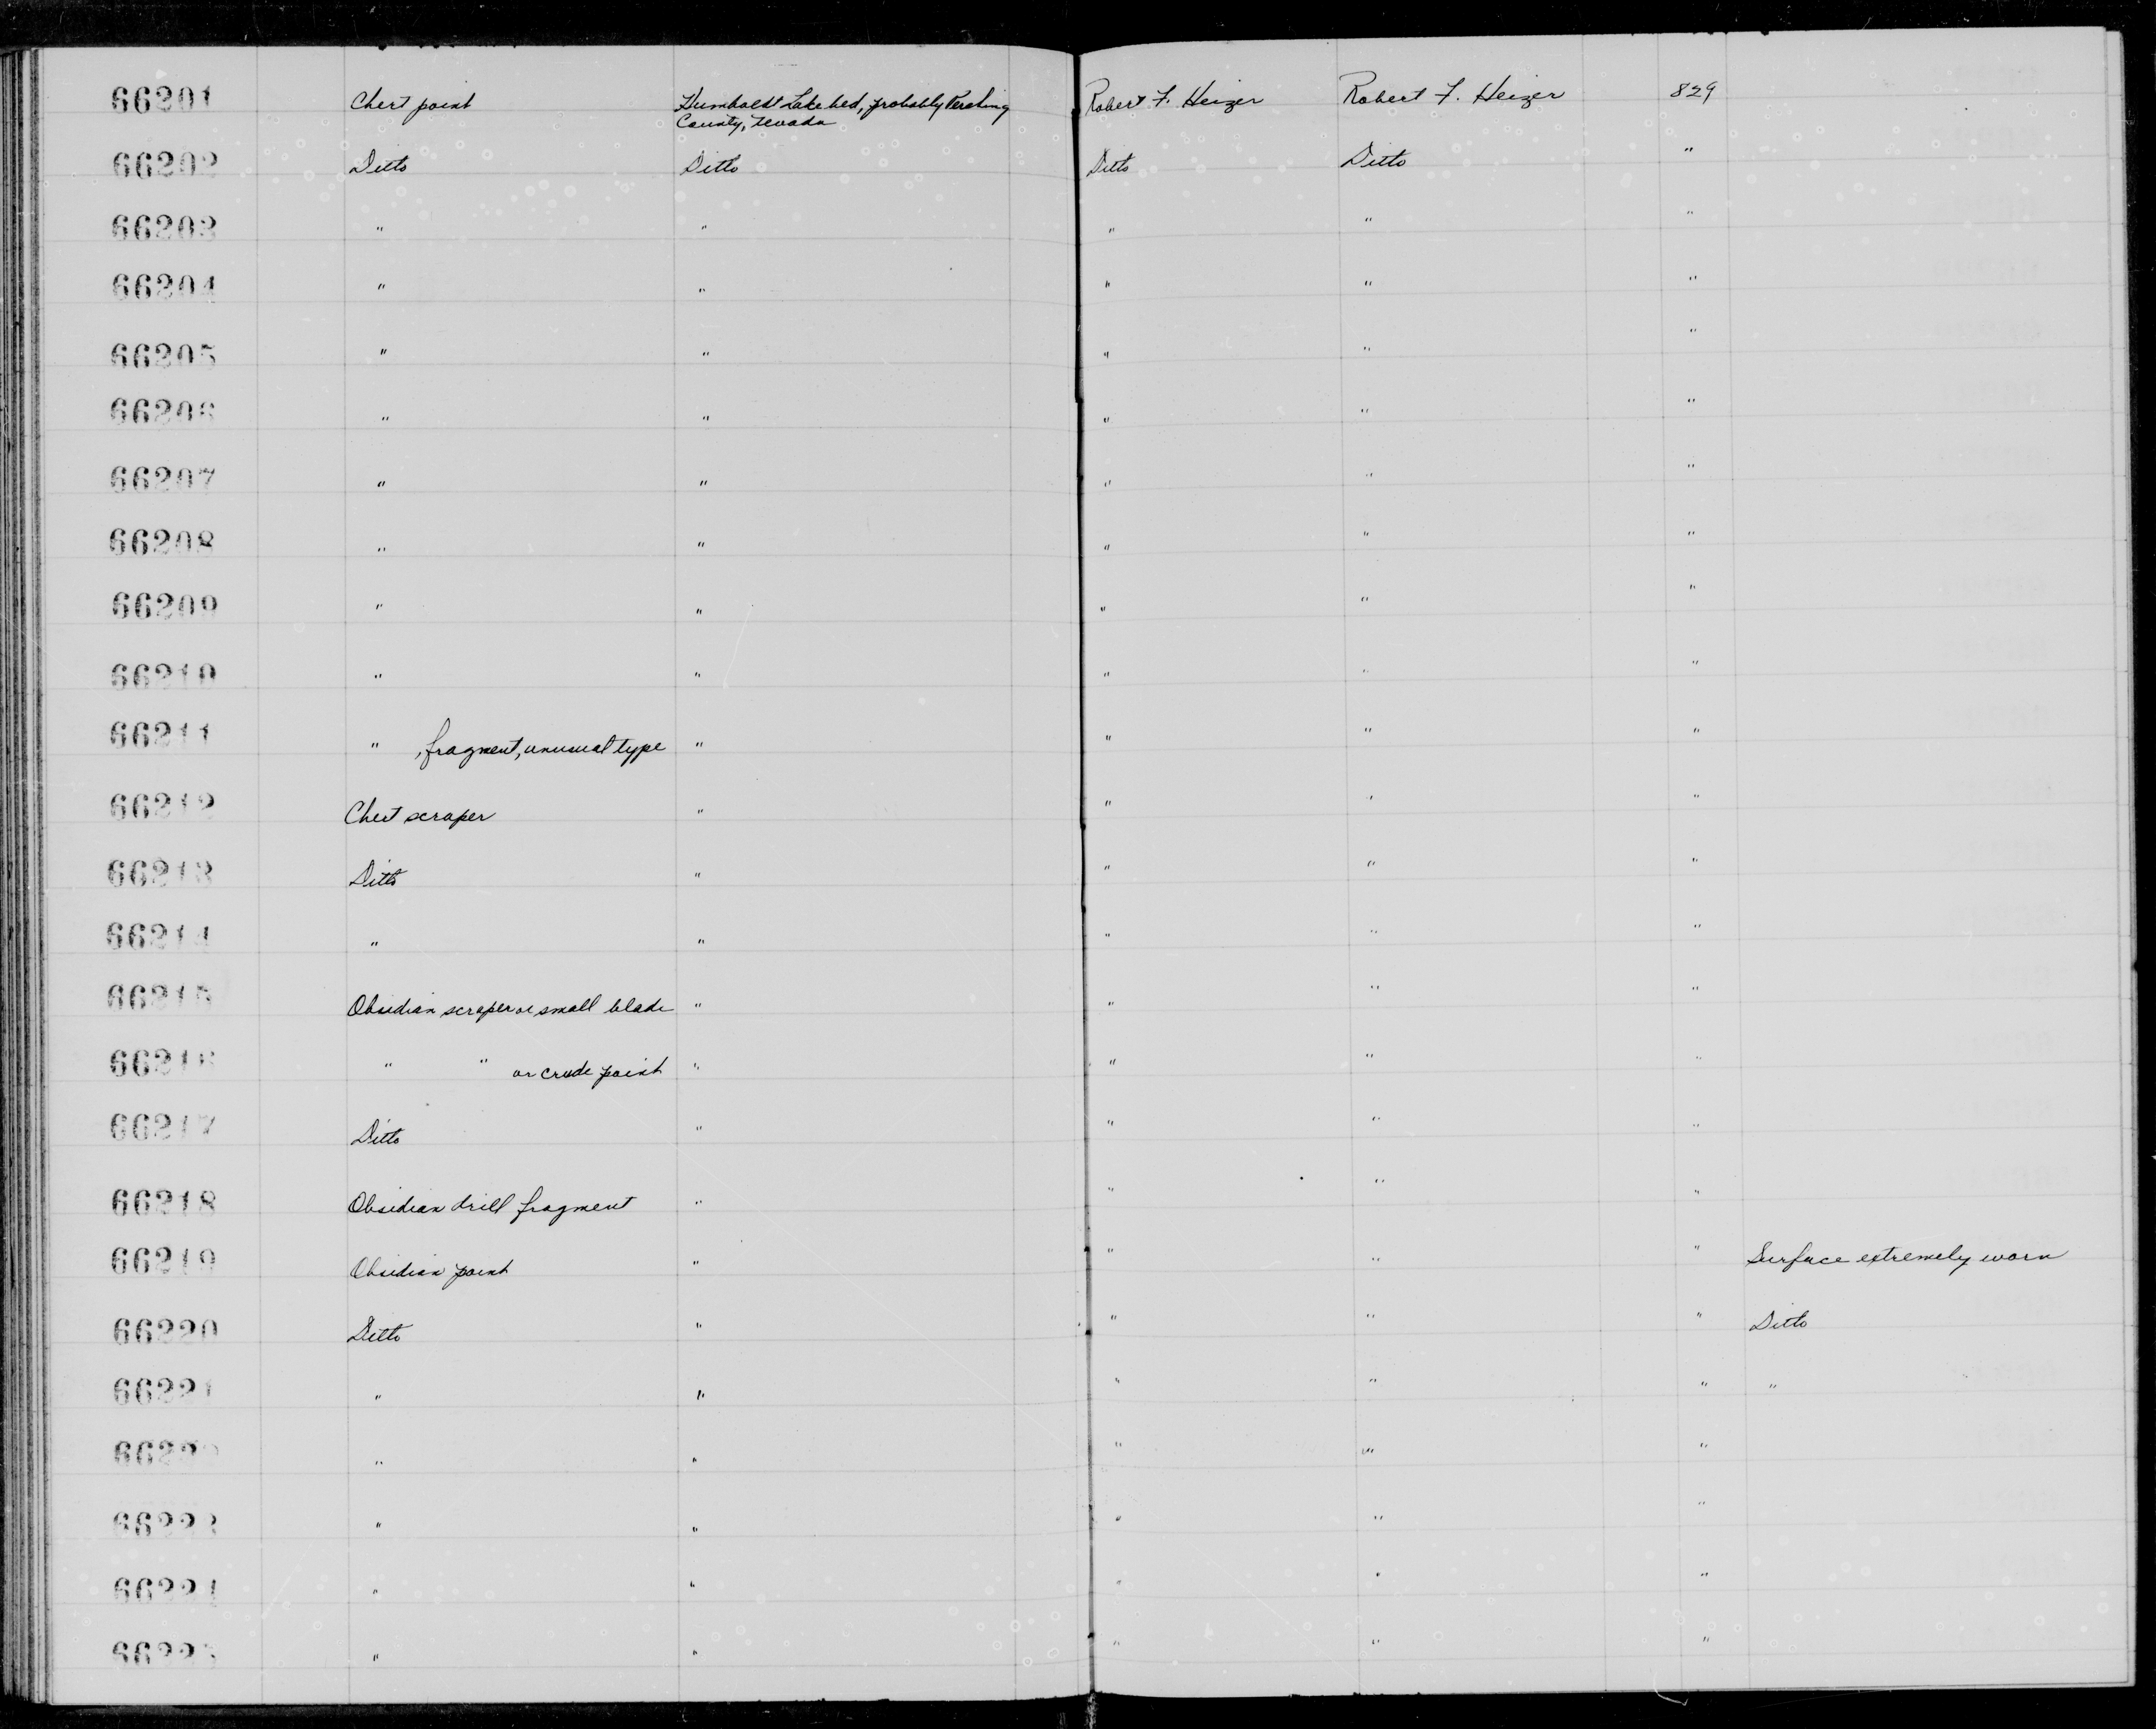 66201 Chert point Humboldt Lake bed, probably Pershing Robert F. Heizer Robert F. Heizer 829
County, Nevada
66202 Ditto Ditto Ditto Ditto "
66203 " " " " "
66204 " " " " "
66205 " " " " "
66206 " " " " "
66207 " " " " "
66208 " " " " "
66209 " " " " "
66210 " " " " "
66211 " , fragment, unusual type " " " "
66212 Chert scraper " " " "
66213 Ditto " " " "
66214 " " " " "
66215 Obsidian scraper or small blade " " " "
66216 " " or crude point " " " "
66217 Ditto " " " "
66218 Obsidian drill fragment " " " "
66219 Obsidian point " " " " Surface extremely worn
66220 Ditto " " " " Ditto
66221 " " " " " "
66222 " " " " "
66223 " " " " "
66224 " " " " "
66225 " " " " "